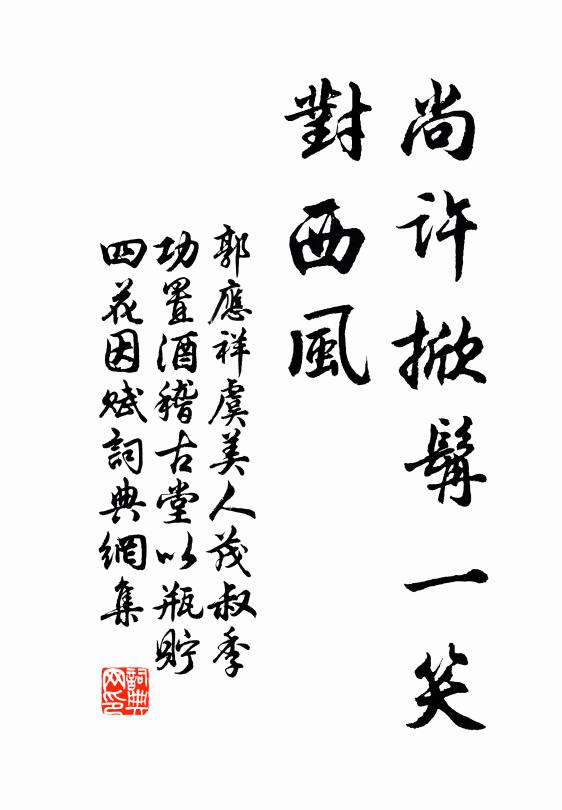 尚许掀髯一笑
對西風
郭應祥虞美人茂叔季
功置酒稽古堂以瓶貯
四花因赋詞典網集
詞典
网印